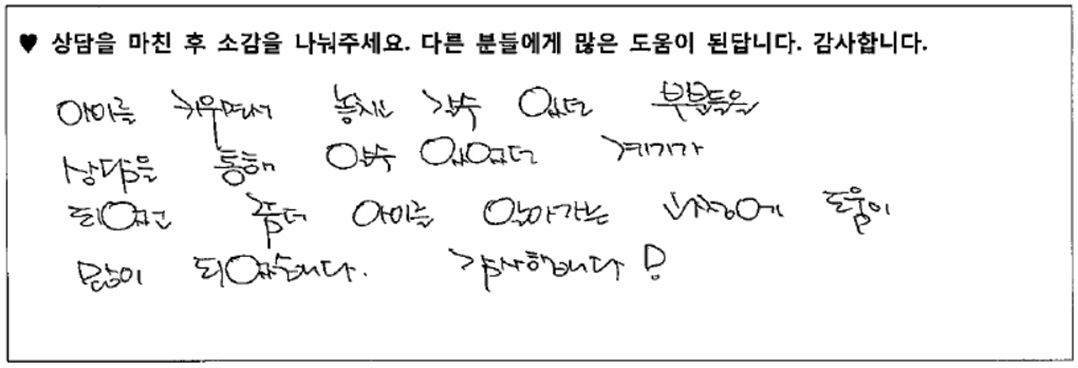 ♥ 상담을 마친 후 소감을 나눠주세요. 다른 분들에게 많은 도움이 된답니다. 감사합니다.
아이를 키우면서 놓치고 갈수 있던 부분들을
상담을 통해 알수 있었던 계기가
되었고 좀더 아이를 알아가는 과정에 도움이
많이 되었습니다. 감사합니다!